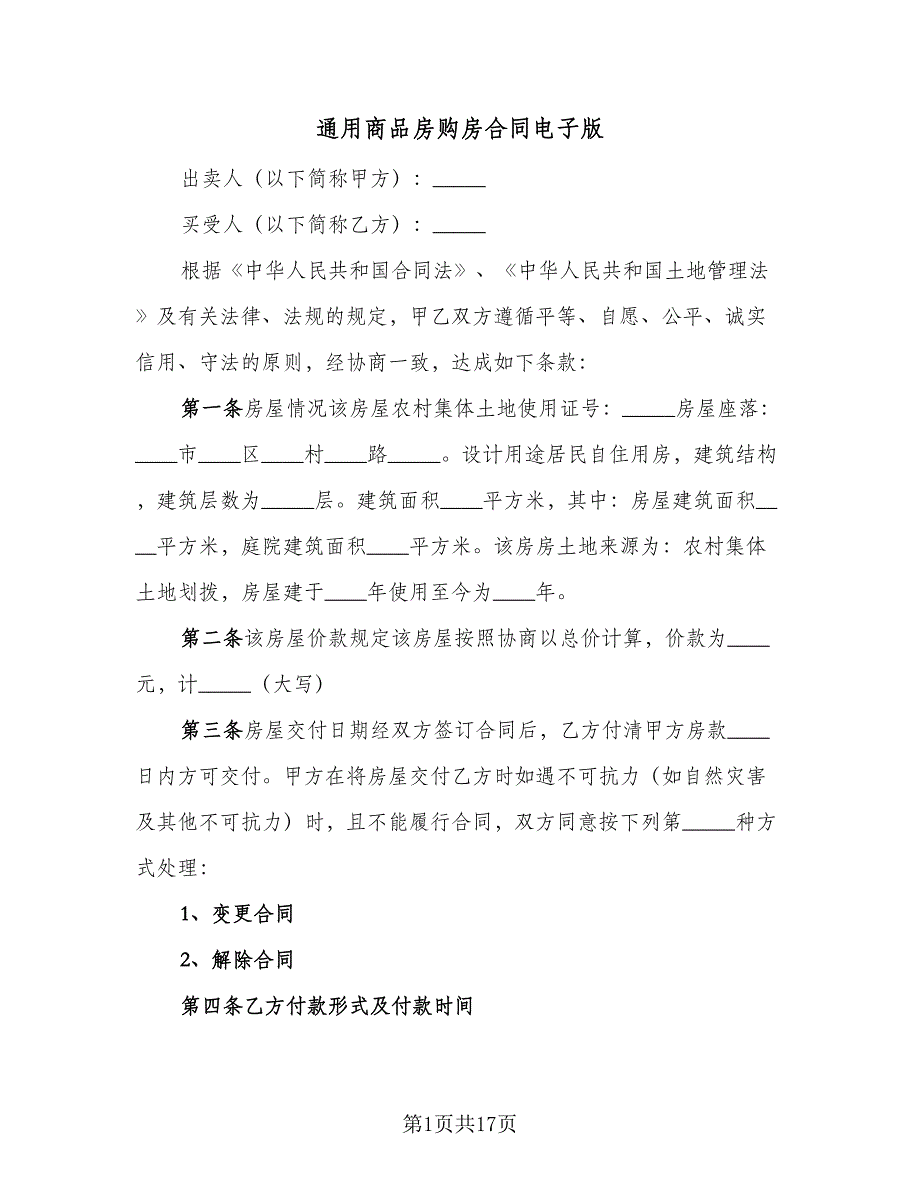 通用商品房购房合同电子版
出卖人（以下简称甲方）：_____
买受人（以下简称乙方）：_____
根据《中华人民共和国合同法》、《中华人民共和国土地管理法
》及有关法律、法规的规定，甲乙双方遵循平等、自愿、公平、诚实
信用、守法的原则，经协商一致，达成如下条款：
第一条房屋情况该房屋农村集体土地使用证号：_____房屋座落：
____市____区____村____路_____。设计用途居民自住用房，建筑结构
，建筑层数为_____层。建筑面积____平方米，其中：房屋建筑面积__
__平方米，庭院建筑面积____平方米。该房房土地来源为：农村集体
土地划拨，房屋建于____年使用至今为____年。
第二条该房屋价款规定该房屋按照协商以总价计算，价款为____
元，计_____（大写）
第三条房屋交付日期经双方签订合同后，乙方付清甲方房款____
日内方可交付。甲方在将房屋交付乙方时如遇不可抗力（如自然灾害
及其他不可抗力）时，且不能履行合同，双方同意按下列第_____种方
式处理：
1、变更合同
2、解除合同
第四条乙方付款形式及付款时间
第1页共17页